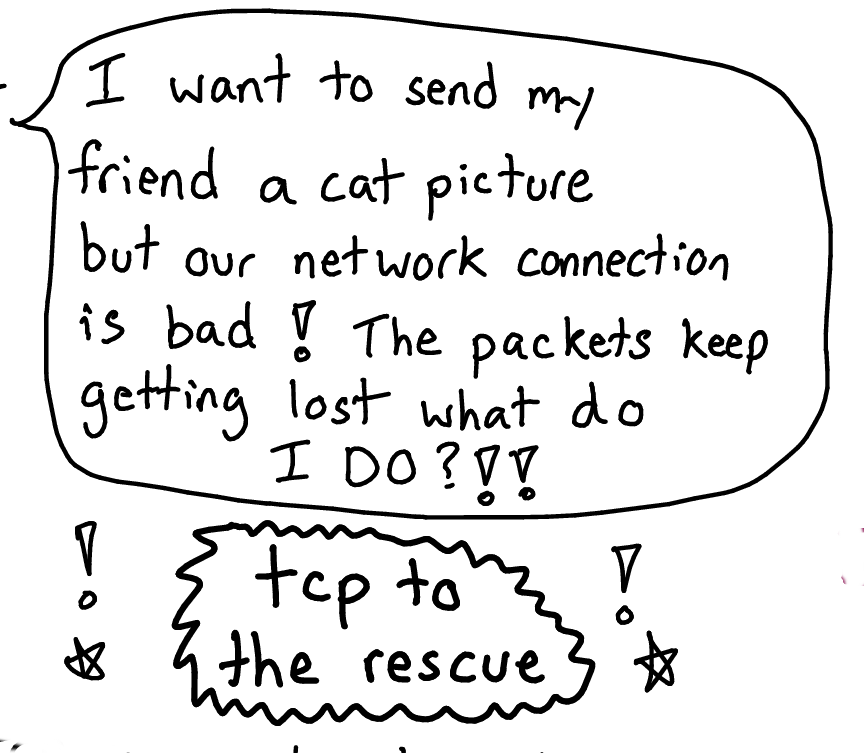 I want to send my
friend a cat picture
but our network connection
is bad! The packets keep
getting lost what do
I DO?!!
!
!
tcp to
the rescue